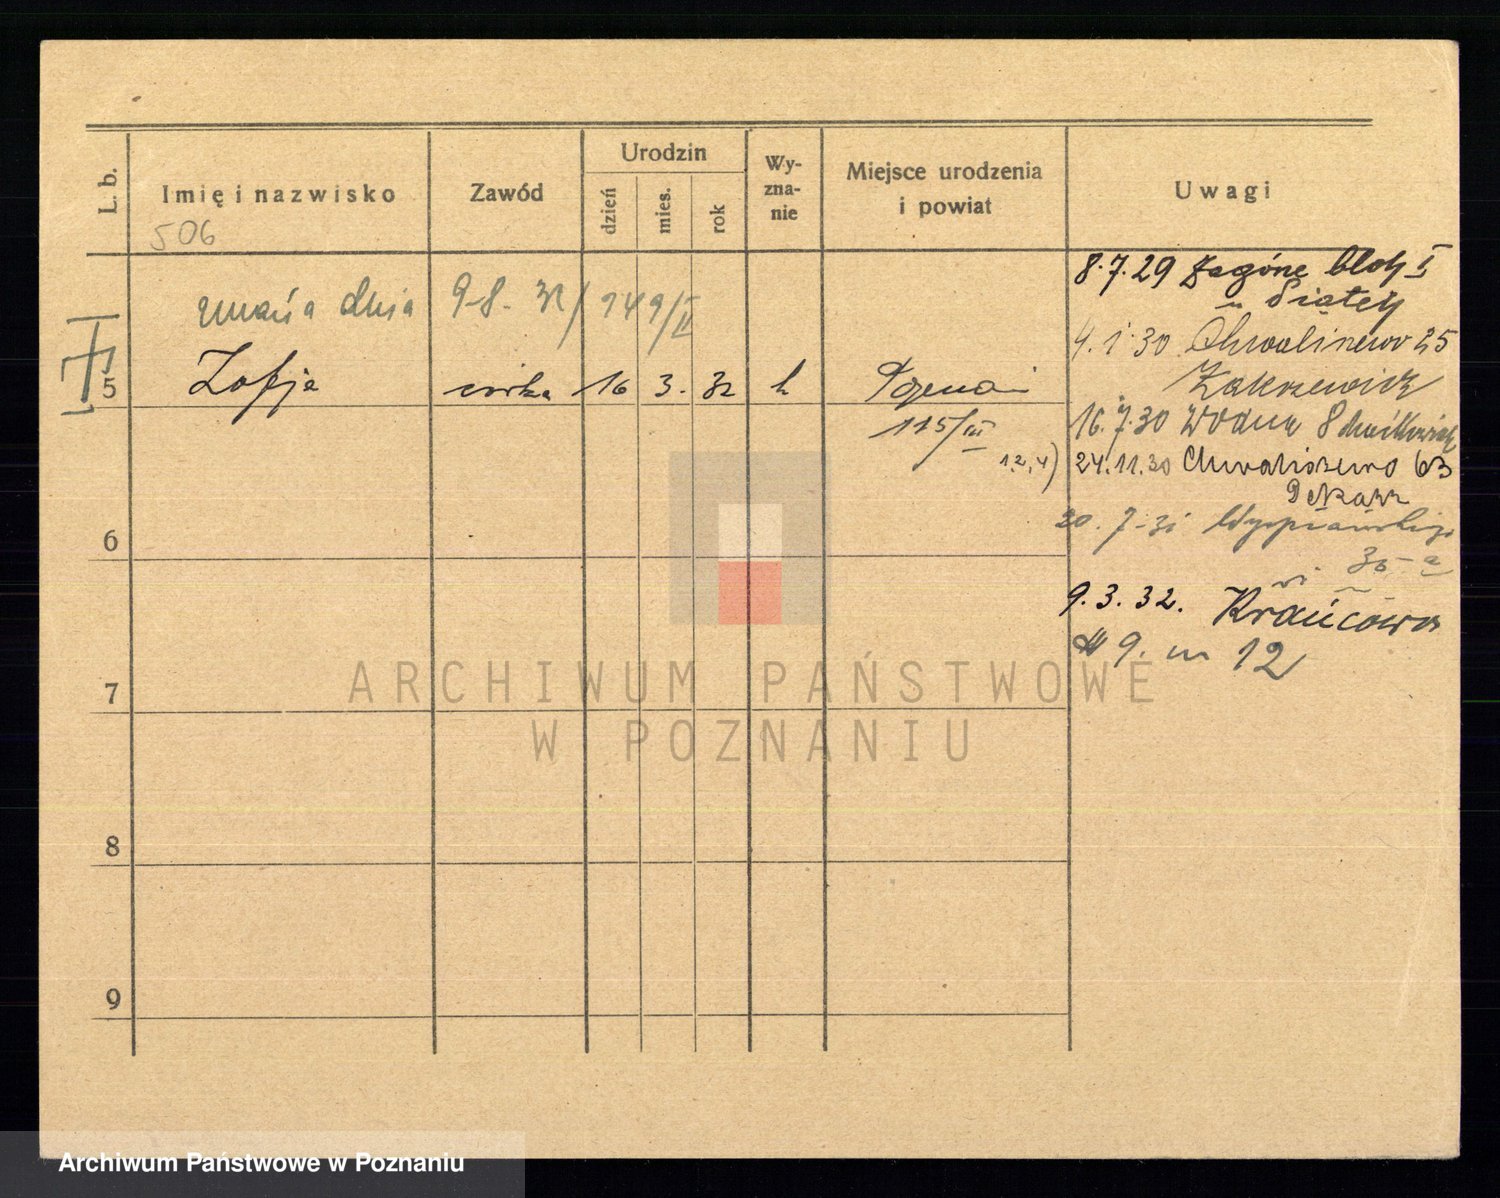 L. b.
Imię i nazwisko
Zawód
Urodzin
dzień
mies.
rok
Wy-
zna-
nie
Miejsce urodzenia
i powiat
Uwagi
506
zmarła dnia 9.8. 32/149/II
5 Zofja córka 16 3. 32 k Poznań
115/III
1,2,4)
8.7.29 Zagórze blok I
u Siatej
4.1.30 Chwaliszewo 25
Zakrzewicz
16.7.30 Wodna
24.11.30 Chwaliszewo 63
Piekarz
20.7.31 Wyspiańskiego
30-a
9.3.32. Krańcowa
9. m 12
6
7
8
9
ARCHIWUM PAŃSTWOWE
W POZNANIU
Archiwum Państwowe w Poznaniu